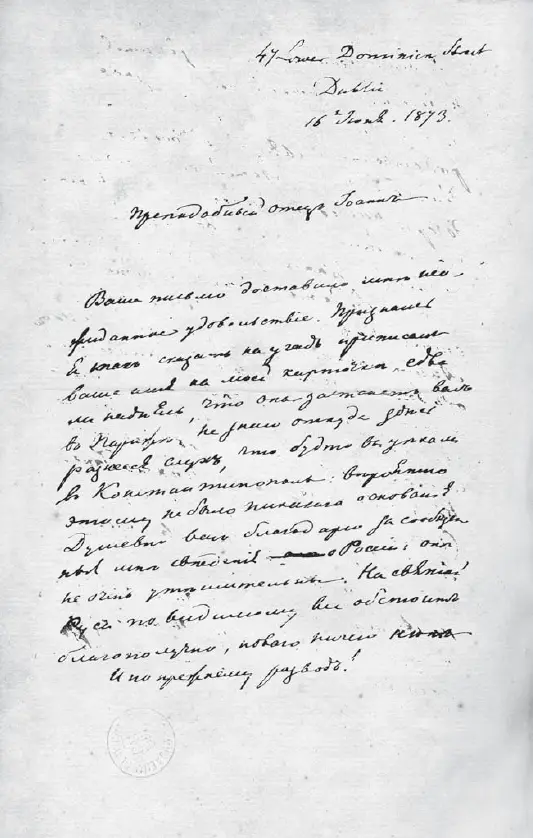 47 Lower Dominick Street
Dublin
16 Июня. 1873.
Преподобный отецъ Іоаннъ
Ваше письмо доставило мнѣ нео-
жиданное удовольствіе. Признаюсь
я такъ сказать на угадъ приписалъ
ваше имя на моей карточкѣ, едва
ли надѣясь, что она застанетъ васъ
въ Парижѣ, не знаю откуда здѣсь
разнесся слухъ, что будто вы уѣхали
въ Константинополь: вѣроятно
этому не было никакого основанія
Душевно васъ благодарю за сообщен
ныя мнѣ свѣдѣнія о Россіи; они
не очень утѣшительны. На святой
Руси по видимому все обстоитъ
благополучно, новаго ничего нѣтъ
И по прежнему разводъ!